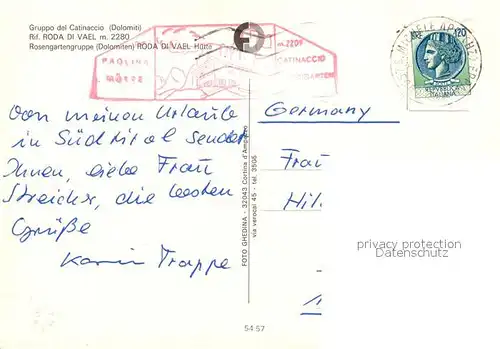 Gruppo del Catinaccio (Dolomiti)
Rif. RODA DI VAEL m. 2280
Rosengartengruppe (Dolomiten) RODA DI VAEL-Hütte
PAOLINA
HÜTTE
m. 2209
CATINACCIO
120
ITALIANA
Von meinem Urlaube
in Südtirol sende
Ihnen, liebe Frau
die besten
Grüße
Karin Trappe
FOTO GHEDINA - 32043 Cortina d'Ampezzo
via verocai 45 - tel. 3506
Germany
Frau
Hil
privacy protection
Datenschutz
54 57